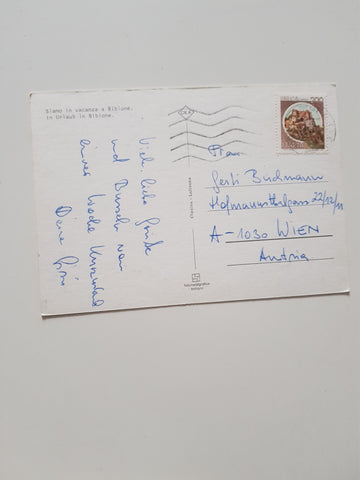 Siamo in vacanza a Bibione.
In Urlaub in Bibione.
Viele liebe Grüße
und Bussels von
einer Woche
Deine
Frau
Gerti Buchmann
Hofmannsthalgasse 22/12/11
A-1030 WIEN
Austria